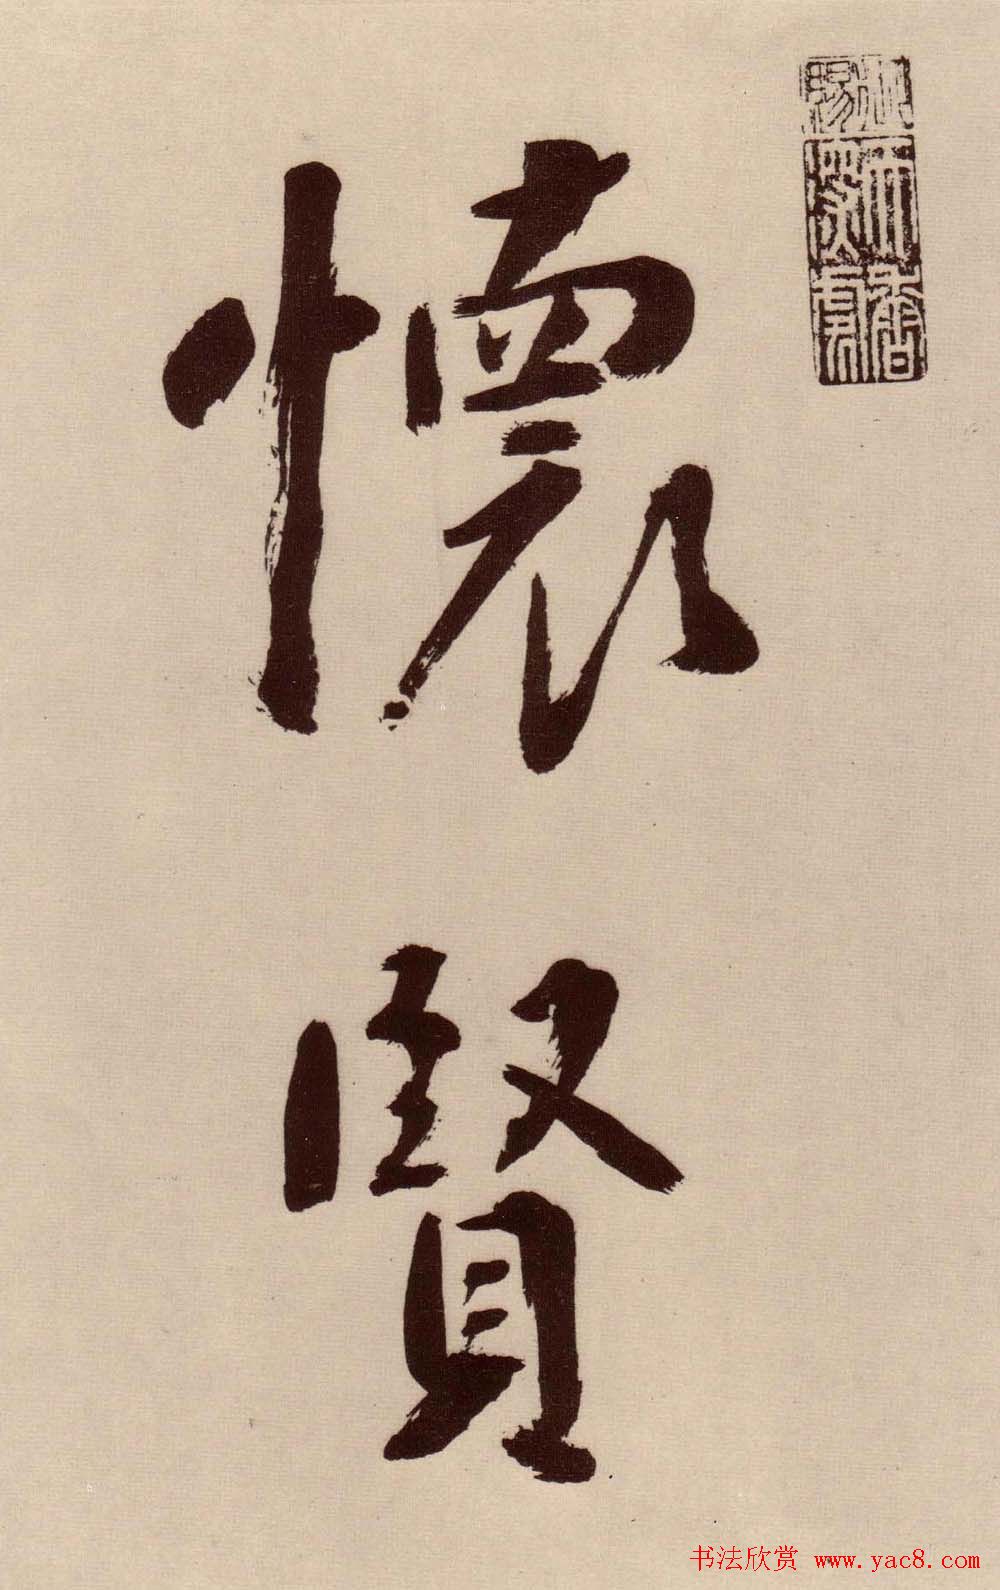 懷賢
书法欣赏 www.yac8.com